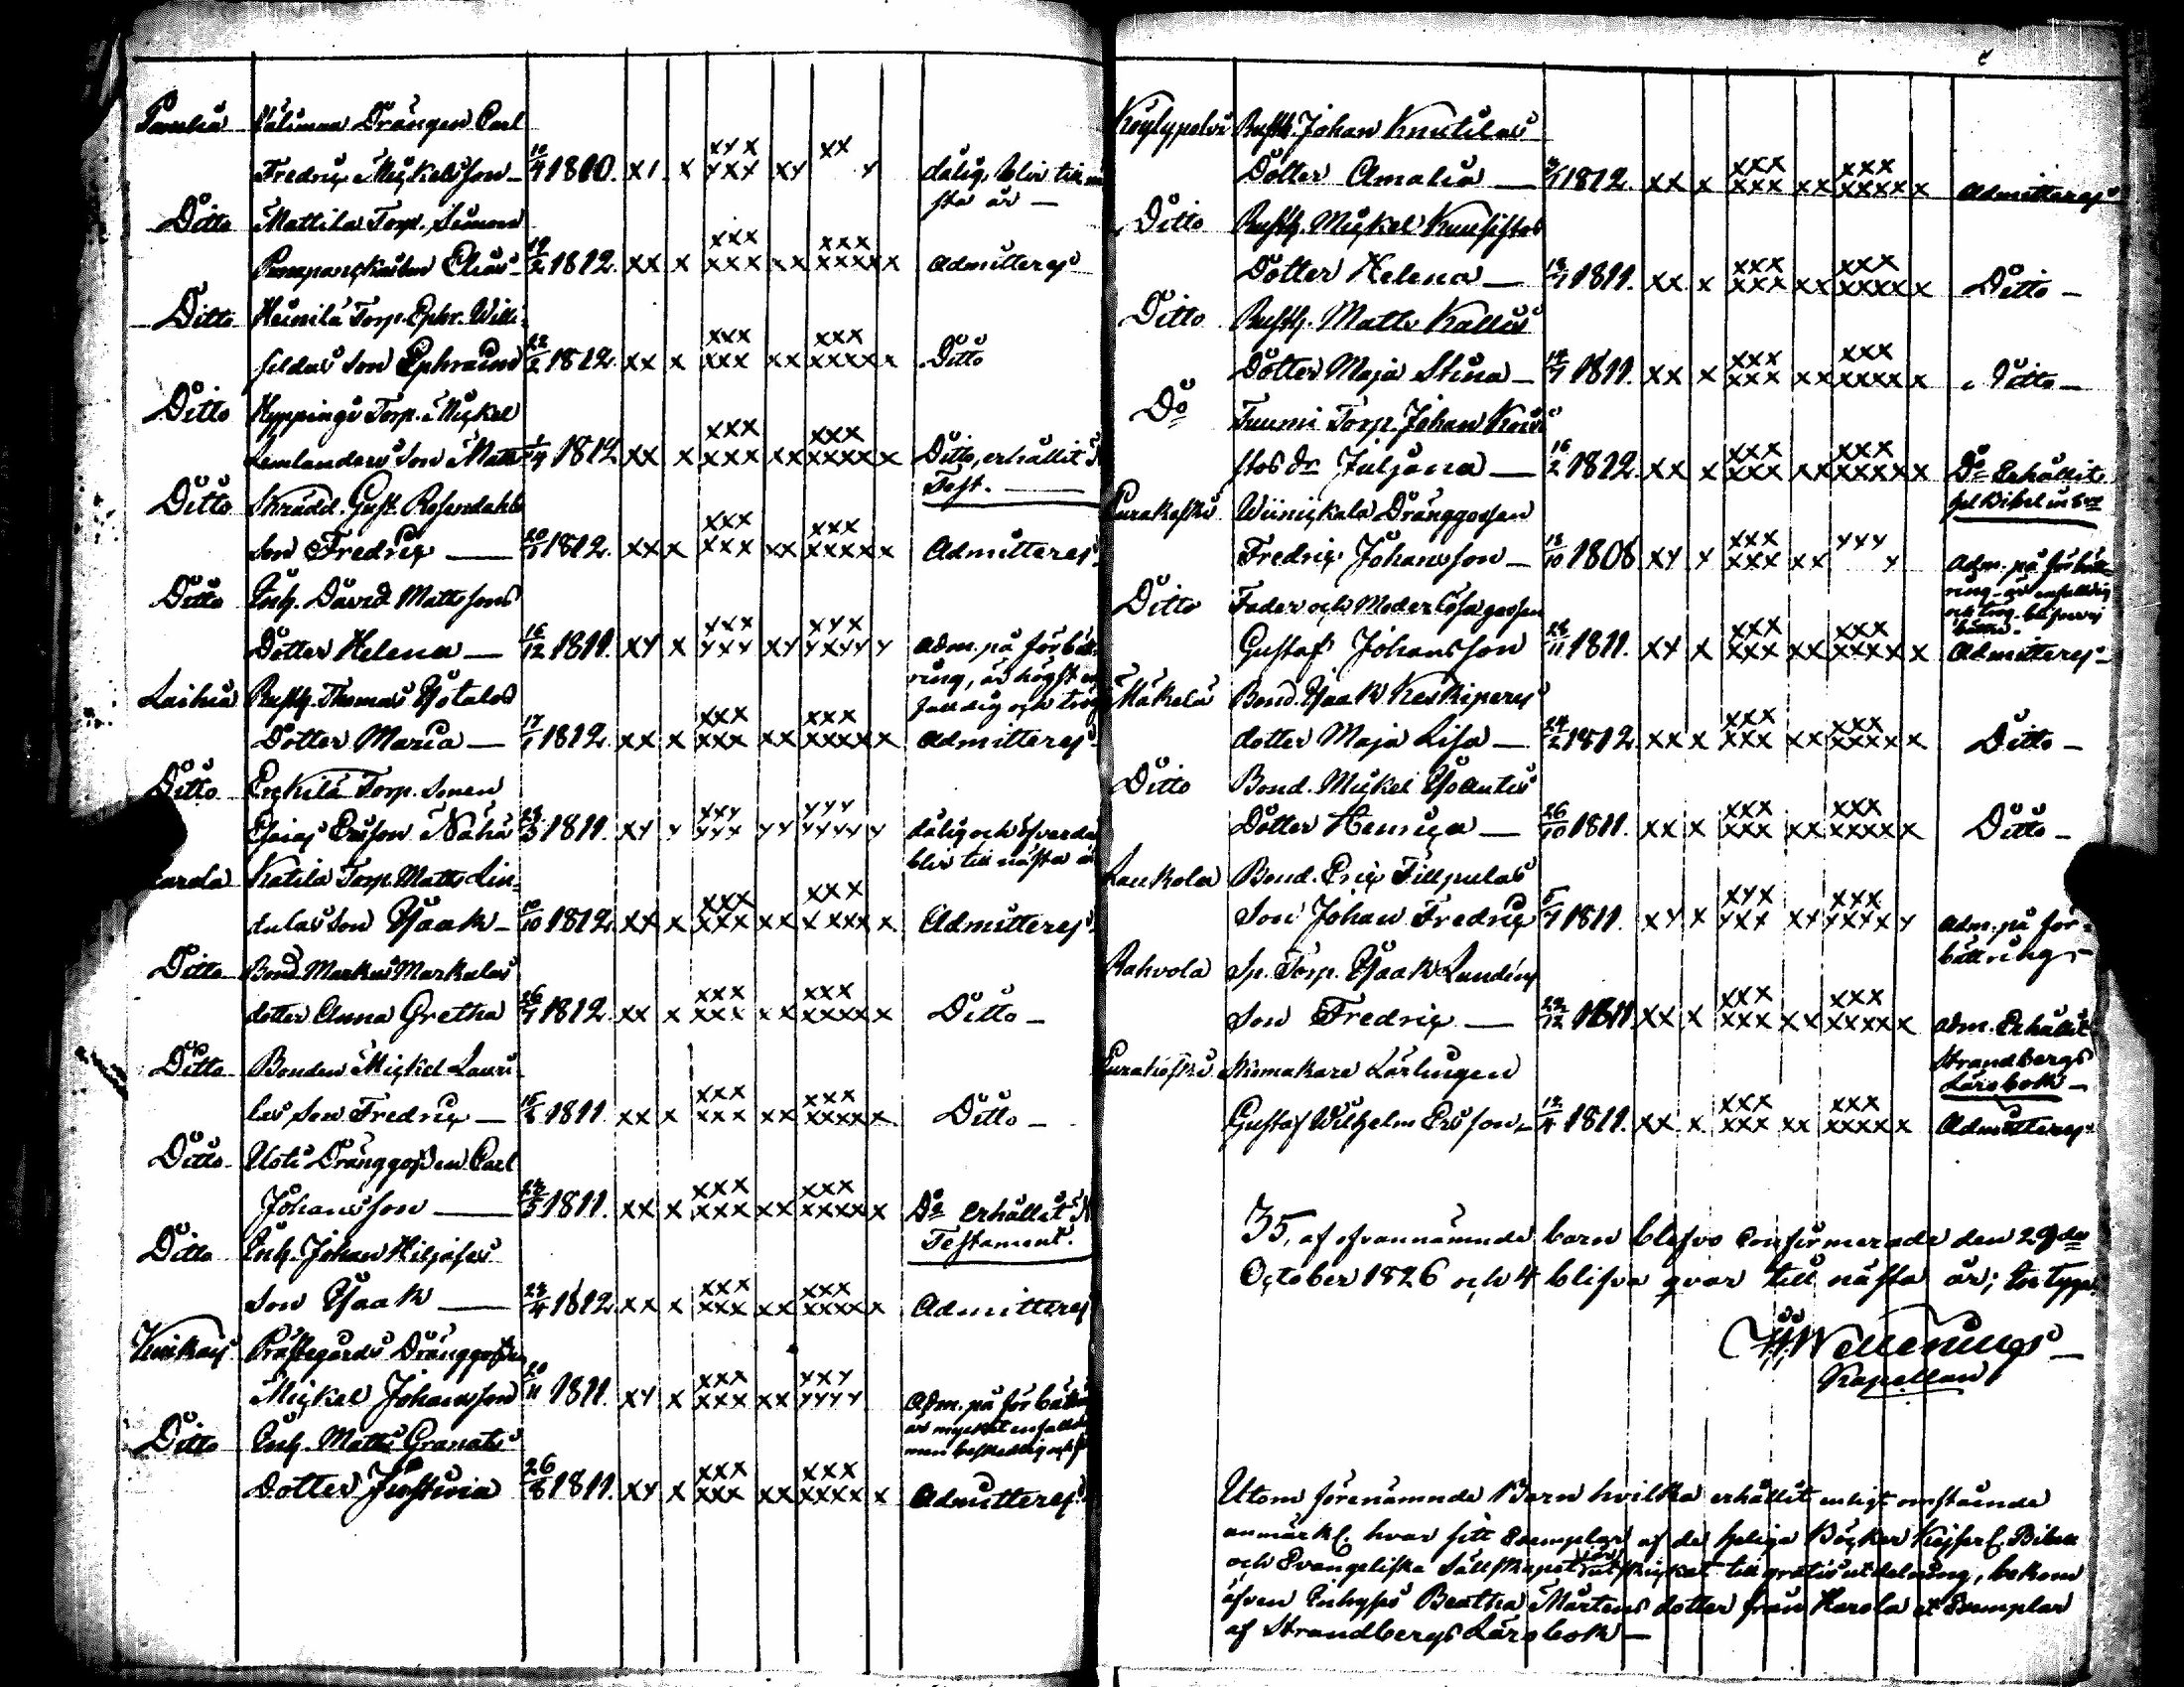 Ditto Välimaa Drängen Carl
Fredric Mickelsson 10/4 1810. x1 x xyx yxx xy xx y dålig, blir till nä
sta år —
Ditto Mattila Torp. Simon
Elias 19/2 1812. xx x xxx xxx xx xxx xxxxx Admitteres
Ditto Heinilä Torp. Ephr. Willi-
son Ephraim 22/2 1812. xx x xxx xxx xx xxx xxxxx Ditto
Ditto Hyppingi Torp. Mickel
Lemlanders Son Matts 1812 xx x xxx xxx xx xxx xxxxx Ditto, erhållit N
Test.
Ditto Skrädd. Gust. Rosendahls
Son Fredric — 20/1 1812. xx x xxx xxx xx xxx xxxxx Admitteres
Ditto Inh. David Mattssons
Dotter Helena — 16/12 1811. xy x yxx yxy xy xyx yxyy y Adm. på förbätt-
ring, är högst en
faldig och trög
Laihia Rusth. Thomas Ysotalos
Dotter Maria — 17/1 1812. xx x xxx xxx xx xxx xxxxx Admitteres
Ditto Erckilä Torp. Sonen
Esaias Ersson Nähä 23/3 1811. xy y xxy yyx yy yyy yyyy y dålig och
blir till nästa år
Katila Torp. Matts Lin-
dulas Son Isaak — 10/10 1812. xx x xxx xxx xx xxx xxxx x Admitteres
Ditto Bond. Markus Markulas
dotter Anna Gretha 26/7 1812. xx x xxx xxx xx xxx xxxxx Ditto —
Ditto Bonden Mickel Lauri-
las Son Fredric — 15/8 1811. xx x xxx xxx xx xxx xxxxx Ditto —
Ditto Uoti Dränggossen Carl
Johansson — 23/5 1811. xx x xxx xxx xx xxx xxxxx Do erhållit N
Testament.
Ditto Inh. Johan Hiljases
Son Isaak — 23/4 1812. xx x xxx xxx xx xxx xxxxx Admitteres
Prästegårds Dränggossen
Mickel Johansson 20/11 1811. xy x xxx xxx xx yxy yyyy Adm. på förbättr
är mycket enfaldig
men beskedlig och
Ditto Inh. Matts Granats
Dotter Justina 26/8 1811. xy x xxx xxx xx xxx xxxx x Admitteres
Köylypolvi Rusth. Johan Knutilas
Dotter Amalia — 1812. xx x xxx xxx xx xxx xxxxx Admitteres
Ditto Rusth. Mickel Kuusistos
Dotter Helena — 1811. xx x xxx xxx xx xxx xxxxx Ditto —
Ditto Rusth. Matts Kallis
Dotter Maja Stina — 14/7 1811. xx x xxx xxx xx xxx xxxxx Ditto —
Do Tuumi Torp. Johan Kuusi
stos dr Juljana — 16/2 1812. xx x xxx xxx xx xxx xxxxx Do Erhållit
Eurakoski Wiinickala Dränggossen
Fredric Johansson — 13/10 1808 xy y xxx xxx xx yyy y Adm. på förbätt-
ring är enfaldig
och trög
bättre.
Ditto Fader och Moderlösa gossen
Gustaf Johansson 28/11 1811. xy x xxx xxx xx xxx xxxxx Admitteres
Mäkelä Bond. Isaak Keskiperes
dotter Maja Lisa — 24/2 1812. xx x xxx xxx xx xxx xxxxx Ditto —
Ditto Bond. Mickel Yoantis
Dotter Henrica — 26/10 1811. xx x xxx xxx xx xxx xxxxx Ditto —
Laukola Bond. Eric Tillpulas
Son Johan Fredric 5/7 1811. xy x xyx yxx xy xxx yxyx y Adm. på för-
bättring.—
Rahvola Sp. Torp. Isaak Lundins
Son Fredric — 22/12 1811. xx x xxx xxx xx xxx xxxxx Adm. Erhållit
Strandbergs
Lärobok —
Eurakoski Skomakare Lärlingen
Gustaf Wilhelm Ersson 13/4 1811. xx x xxx xxx xx xxx xxxxx Admitteres
35, af ofvannämnde barn blefvo Confirmerade den 29de
October 1826 och 4 blifva qvar till nästa år;
Kapellan
Utom förenämnde Barn hvilka erhållit enligt omstående
anmärkn. hvar sitt Exemplar af de heliga Böcker Bibel
och Evangeliska Sällskapet utskickat till gratis utdelning, bekom
äfven Inhyses Beatha Mårtens dotter från Harola et Exemplar
af Strandbergs Lärobok —